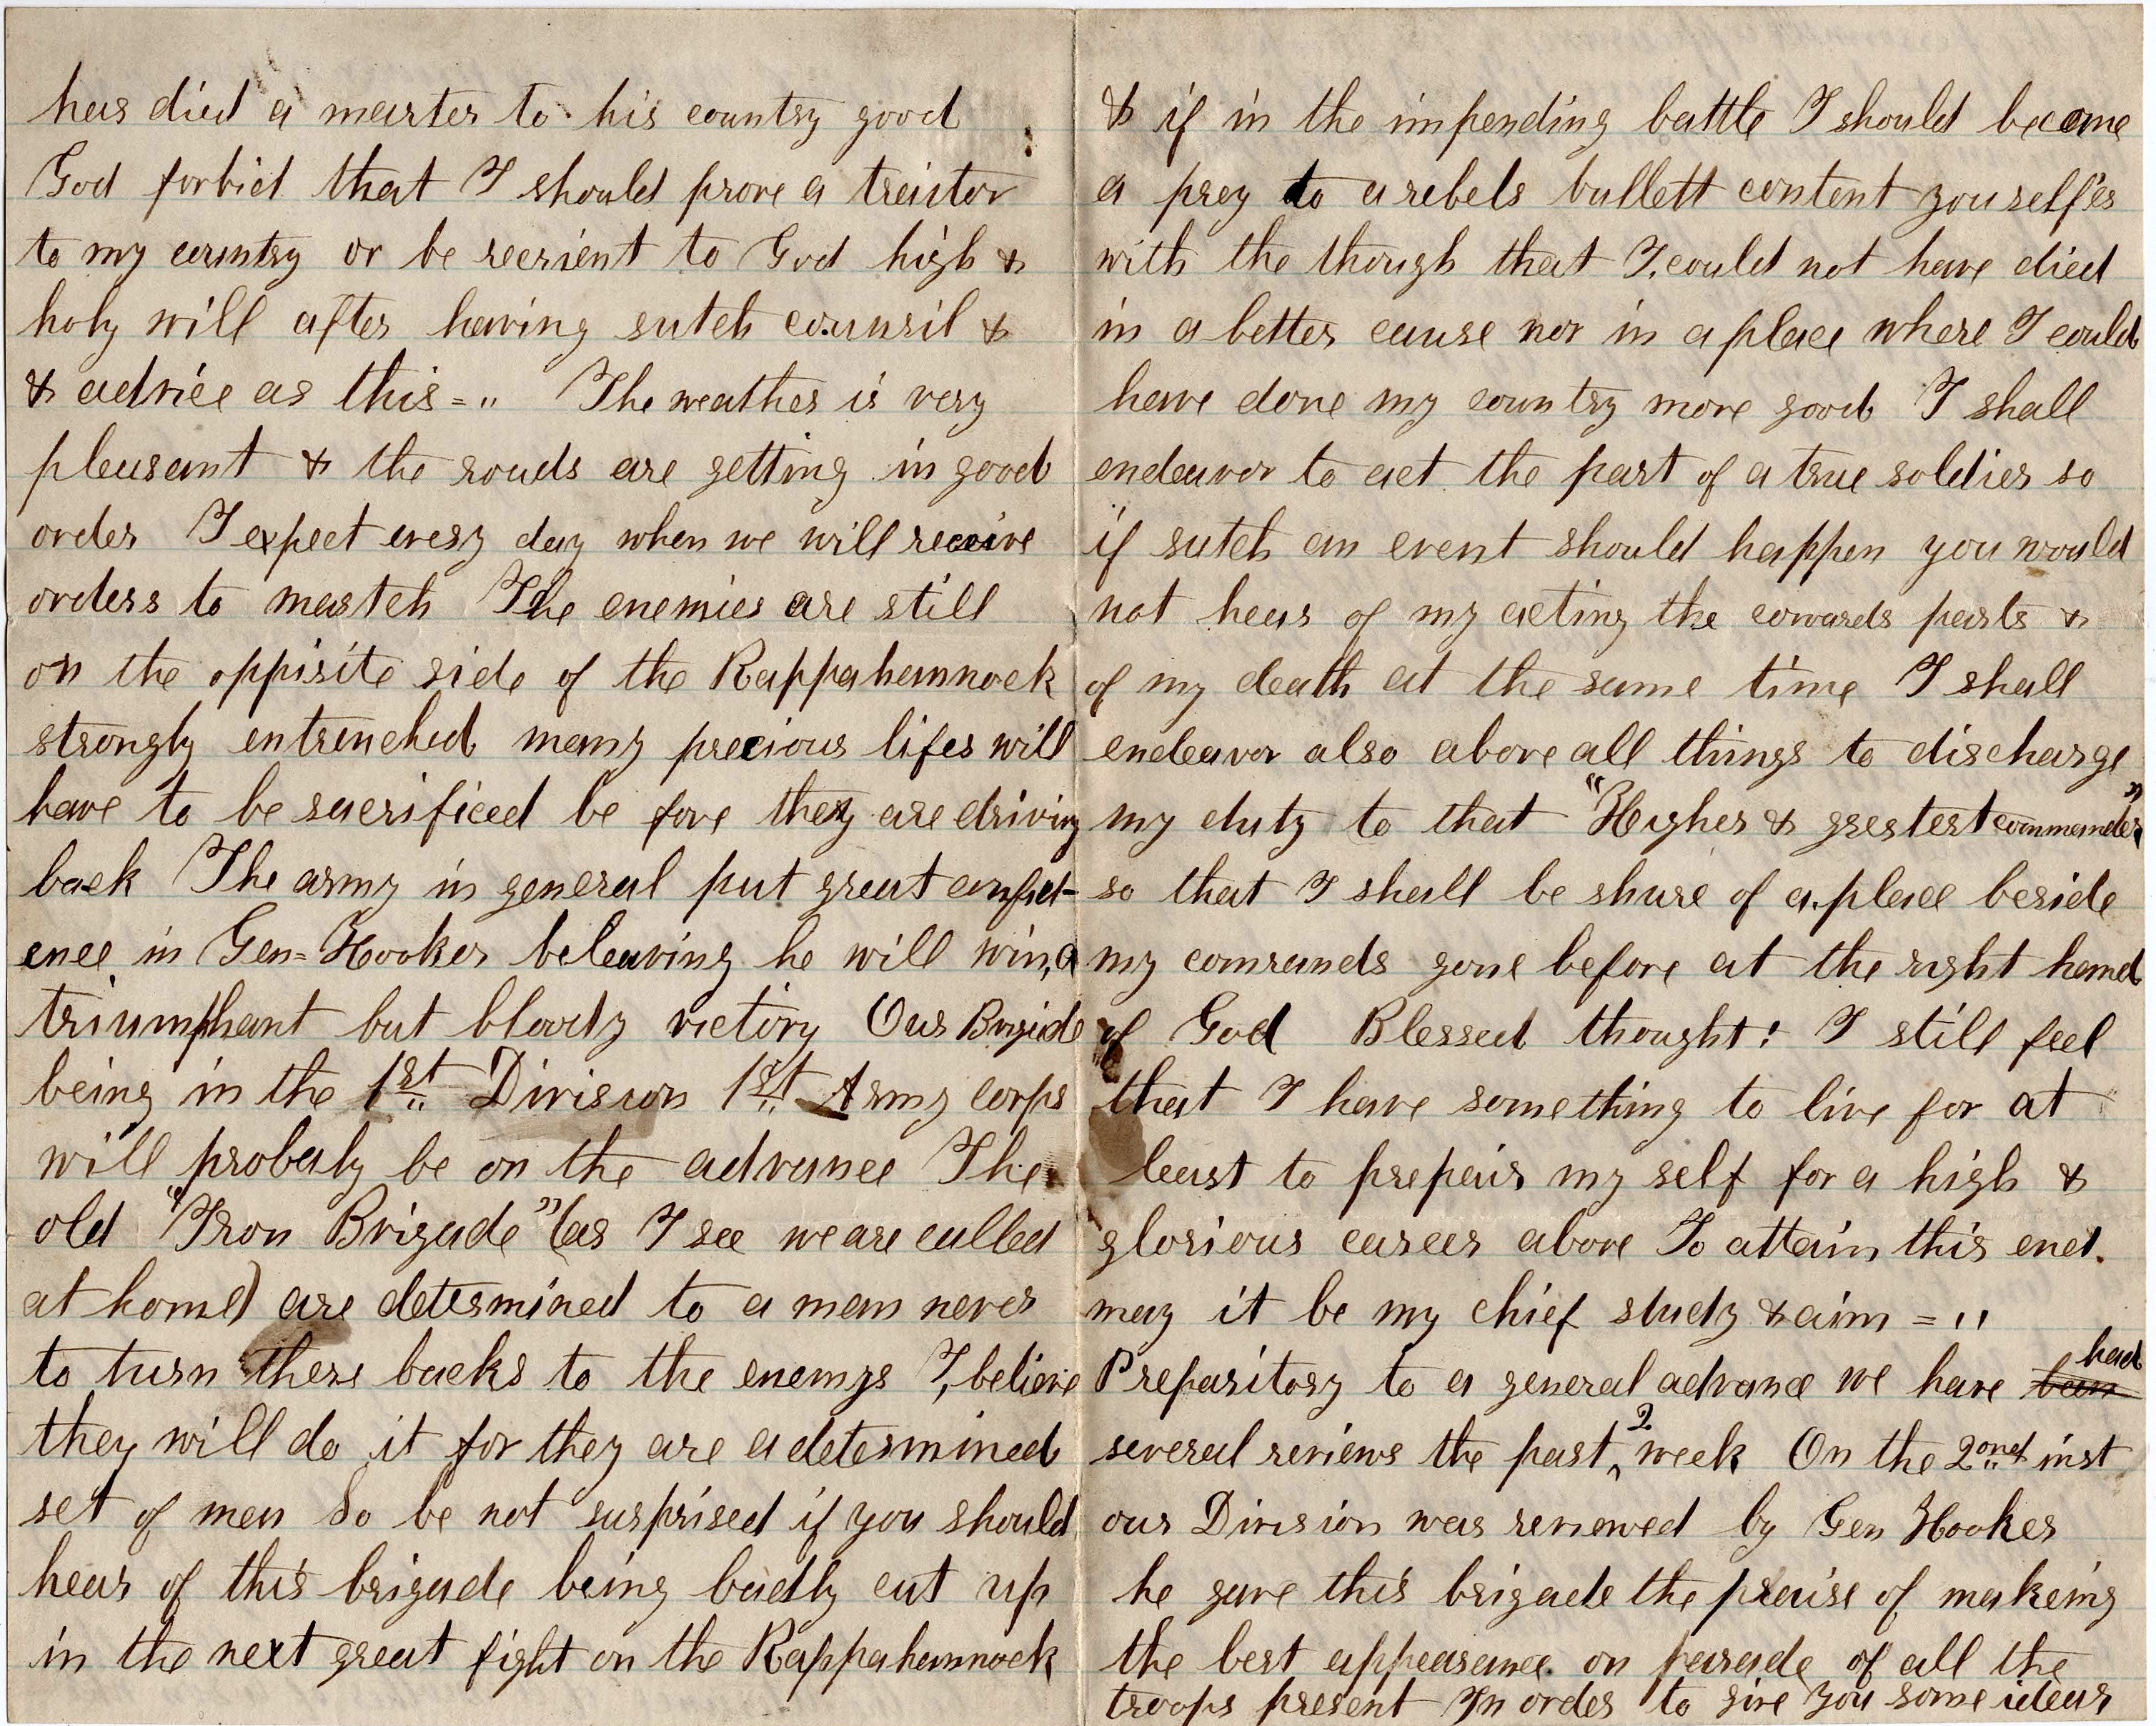 has died a marter to his country good
God forbid that I should prove a traitor
to my country or be recrient to God high &
holy will after having sutch counsil &
& advice as this = " The weather is very
pleasant & the roads are getting in good
order I expect every day when we will receive
orders to martch The enemies are still
on the oppisite side of the Rappahannock
strongly entrenched many precious lifes will
have to be sacrificed be fore they are driving
back The army in general put great confid-
ence in Gen= Hooker beleaving he will win, a
triumphant but bloody victory Our Brigide
being in the 1st Division 1st Army corps
will probaly be on the advance The
old "Iron Brigade" (as I see we are called
at home) are determined to a man never
to turn thers backs to the enemys I, believe
they will do it for they are a determined
set of men So be not surprised if you should
hear of this brigade being badly cut up
in the next great fight on the Rappahannock
& if in the impending battle I should become
a prey to a rebels bullett content youself's
with the though that I, could not have died
in a better cause nor in a place where I could
have done my country more good I shall
endeavor to act the part of a true soldier so
if sutch an event should happen you would
not hear of my acting the cowards parts &
of my death at the same time I shall
endeavor also above all things to discharge
my duty to that "Higher & greatest commander"
so that I shall be shure of a place beside
my comrands gone before at the right hand
of God Blessed thought! I still feel
that I have something to live for at
least to prepair my self for a high &
glorious career above To attain this end.
may it be my chief study & aim = "
Preparitory to a general advance we have been had
several reviews the past 2 week On the 2ond inst
our Division was reviewed by Gen Hooker
he gave this brigade the praise of makeing
the best appearance on parade of all the
troops present In order to give you some ideas